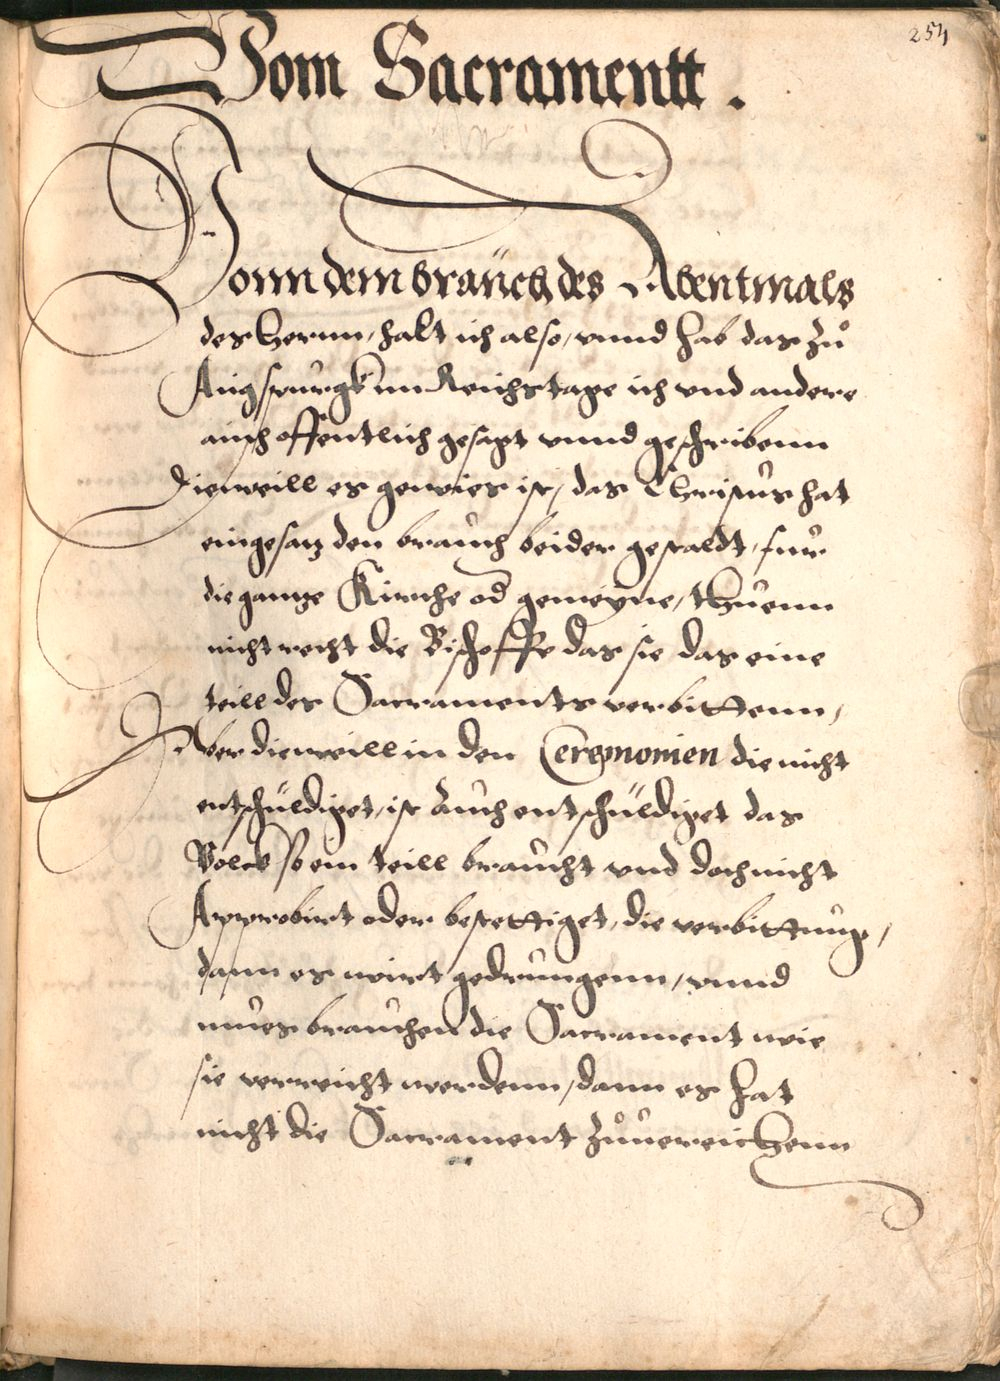 254
Vom Sacramentt .
Vonn dem braüch des Abentmals
des Herrnn, halt ich also, vnnd hab das zů
Augspurgk im Reichstage ich vnd andere
auch offentlich gesagt vnnd geschribenn
Dieweill es gewies ist, das Christus hat
eingesatz den brauch beider gestaldt, fur
die gantze Kirche od gemeyne, thuenn
nicht recht die Bischoffe das sie das eine
teill des Sacraments verbittenn,
Aber dieweill in den Ceremonien die nicht
entschüldiget, ist Auch entschüldiget das
Volck so ein teill braucht vnd doch nicht
Approbirt oder bestettiget, die verbittung,
dann es wirt gedrungenn, vnnd
mues brauchen die Sacrament wie
sie verreicht werdenn, dann es hat
nicht die Sacrament zůuereichenn